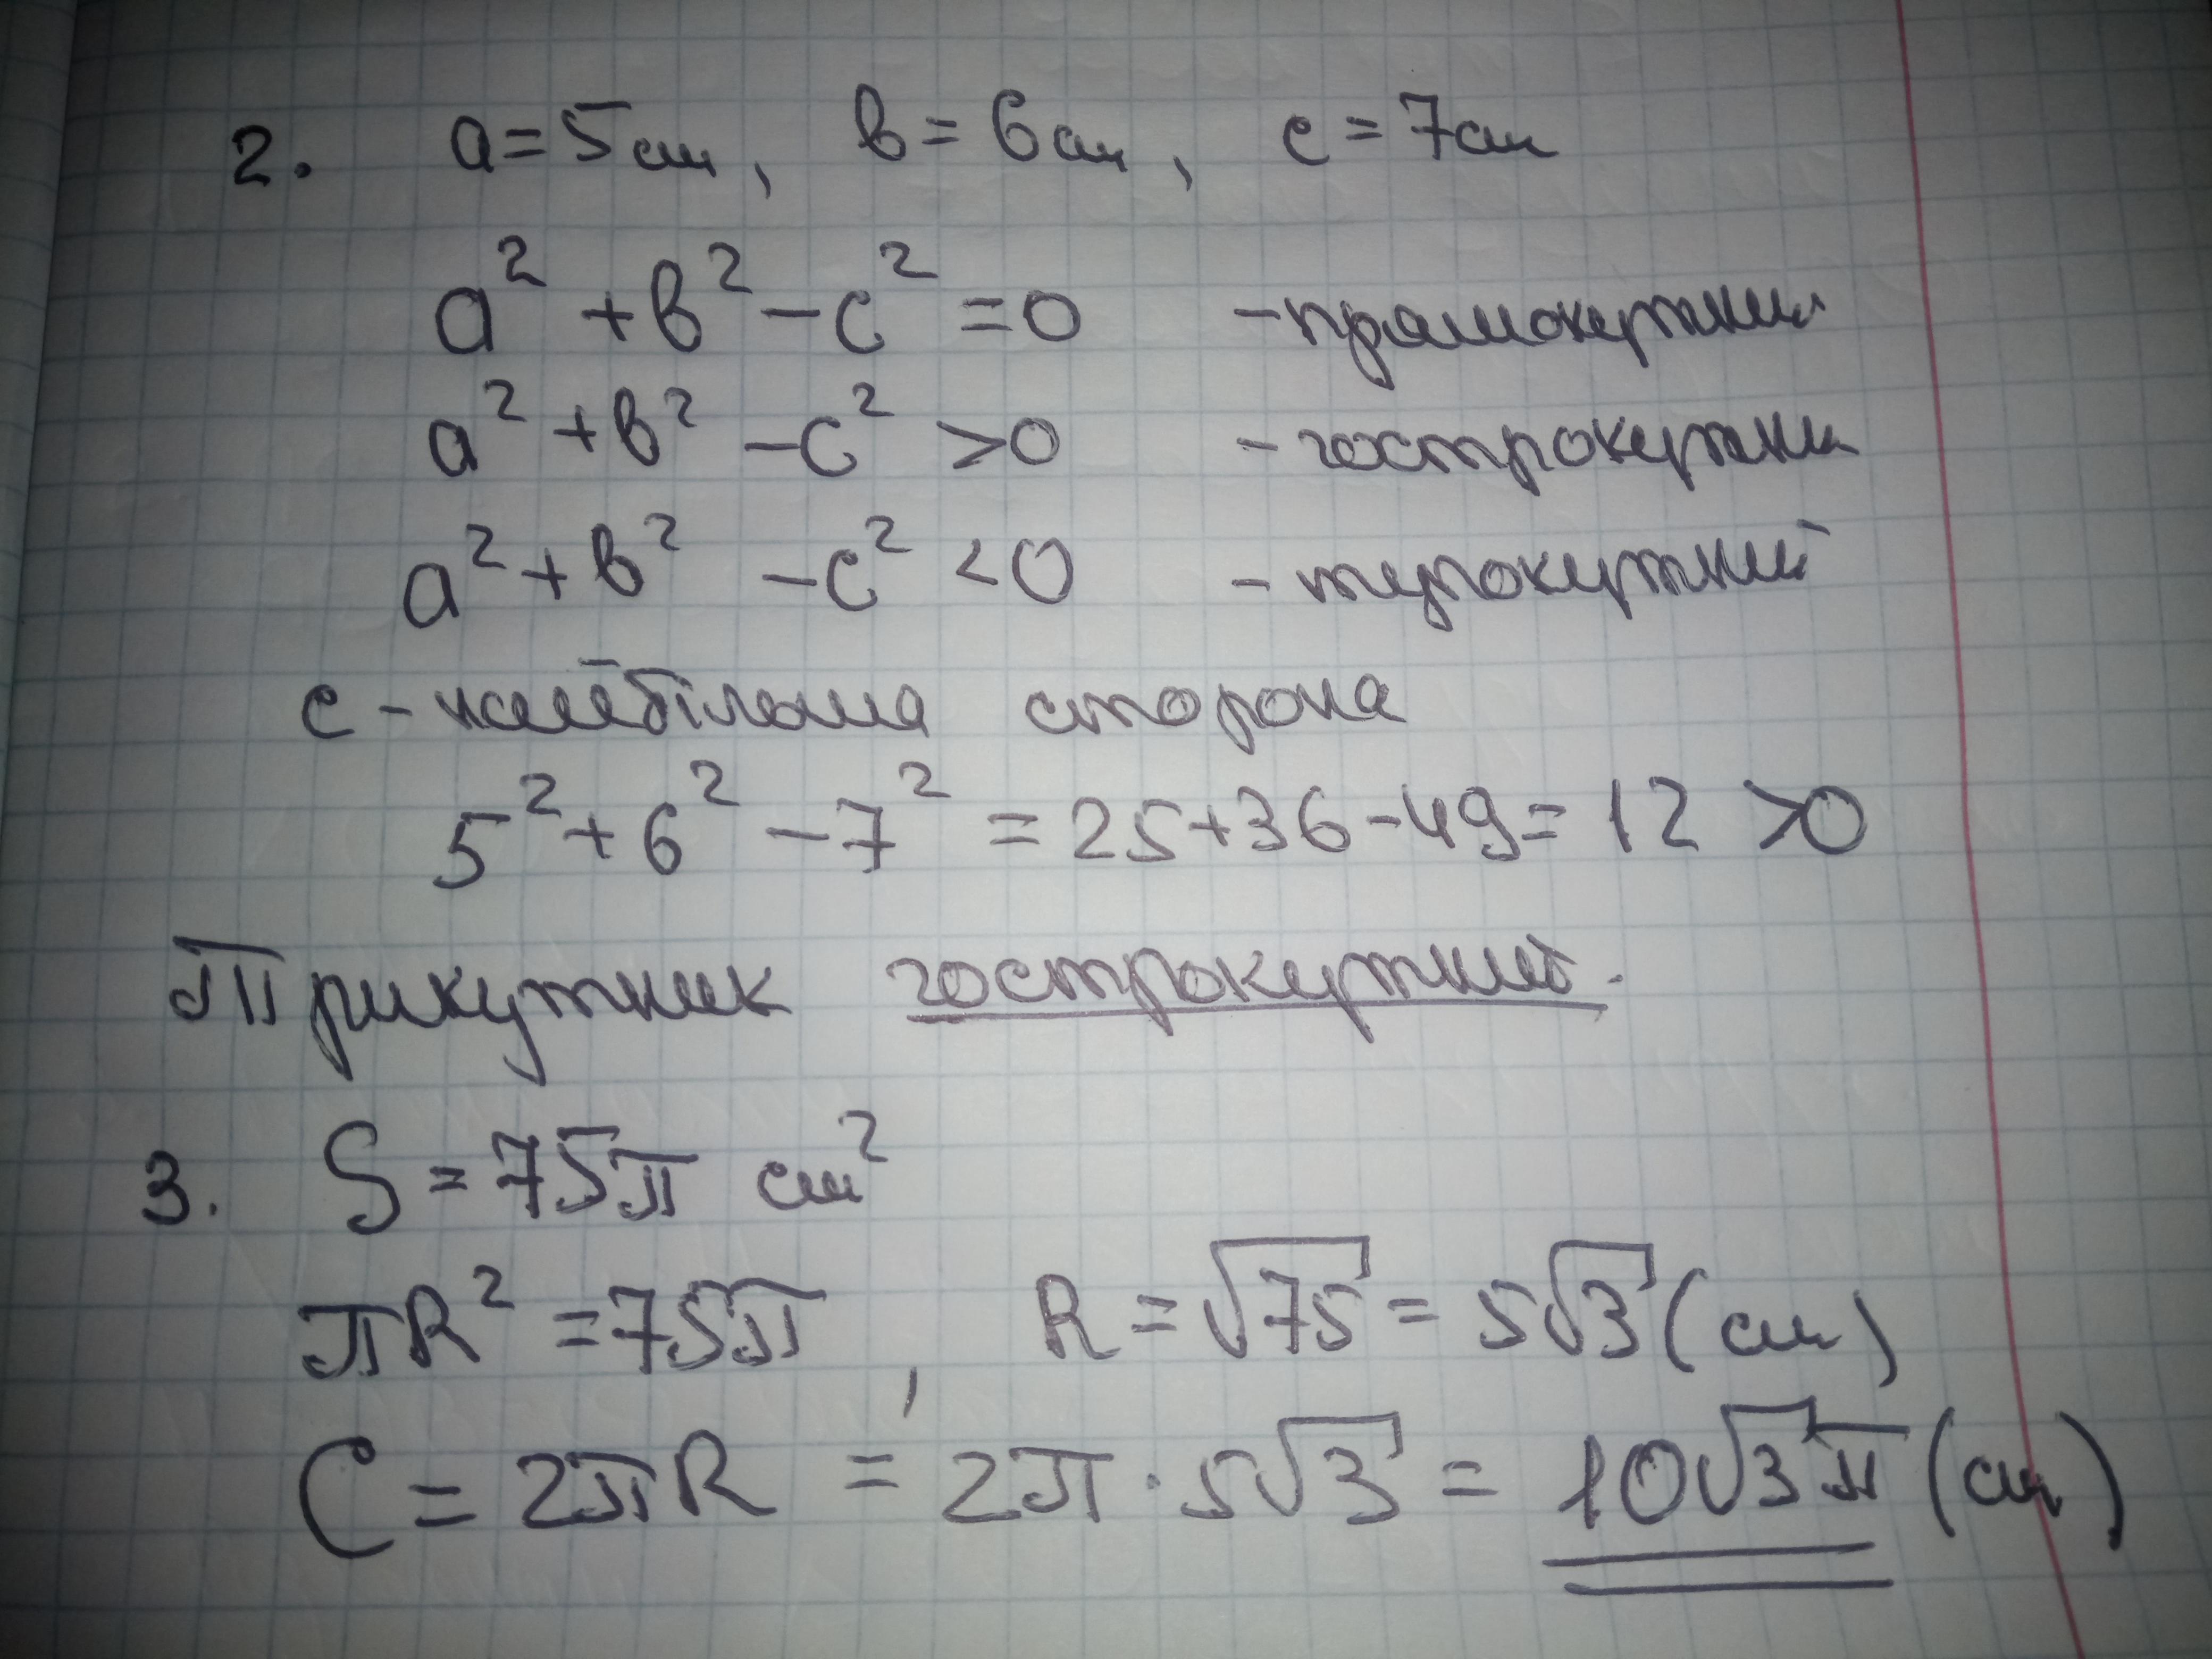 2. a = 5 см, в = 6 см, с = 7 см
a² + в² - с² = 0 - прямокутний
a² + в² - с² > 0 - гострокутний
a² + в² - с² < 0 - тупокутний
с - найбільша сторона
5² + 6² - 7² = 25 + 36 - 49 = 12 > 0
Трикутник гострокутний.
3. S = 75π см²
πR² = 75π, R = √75 = 5√3 (см)
C = 2πR = 2π · 5√3 = 10√3π (см)